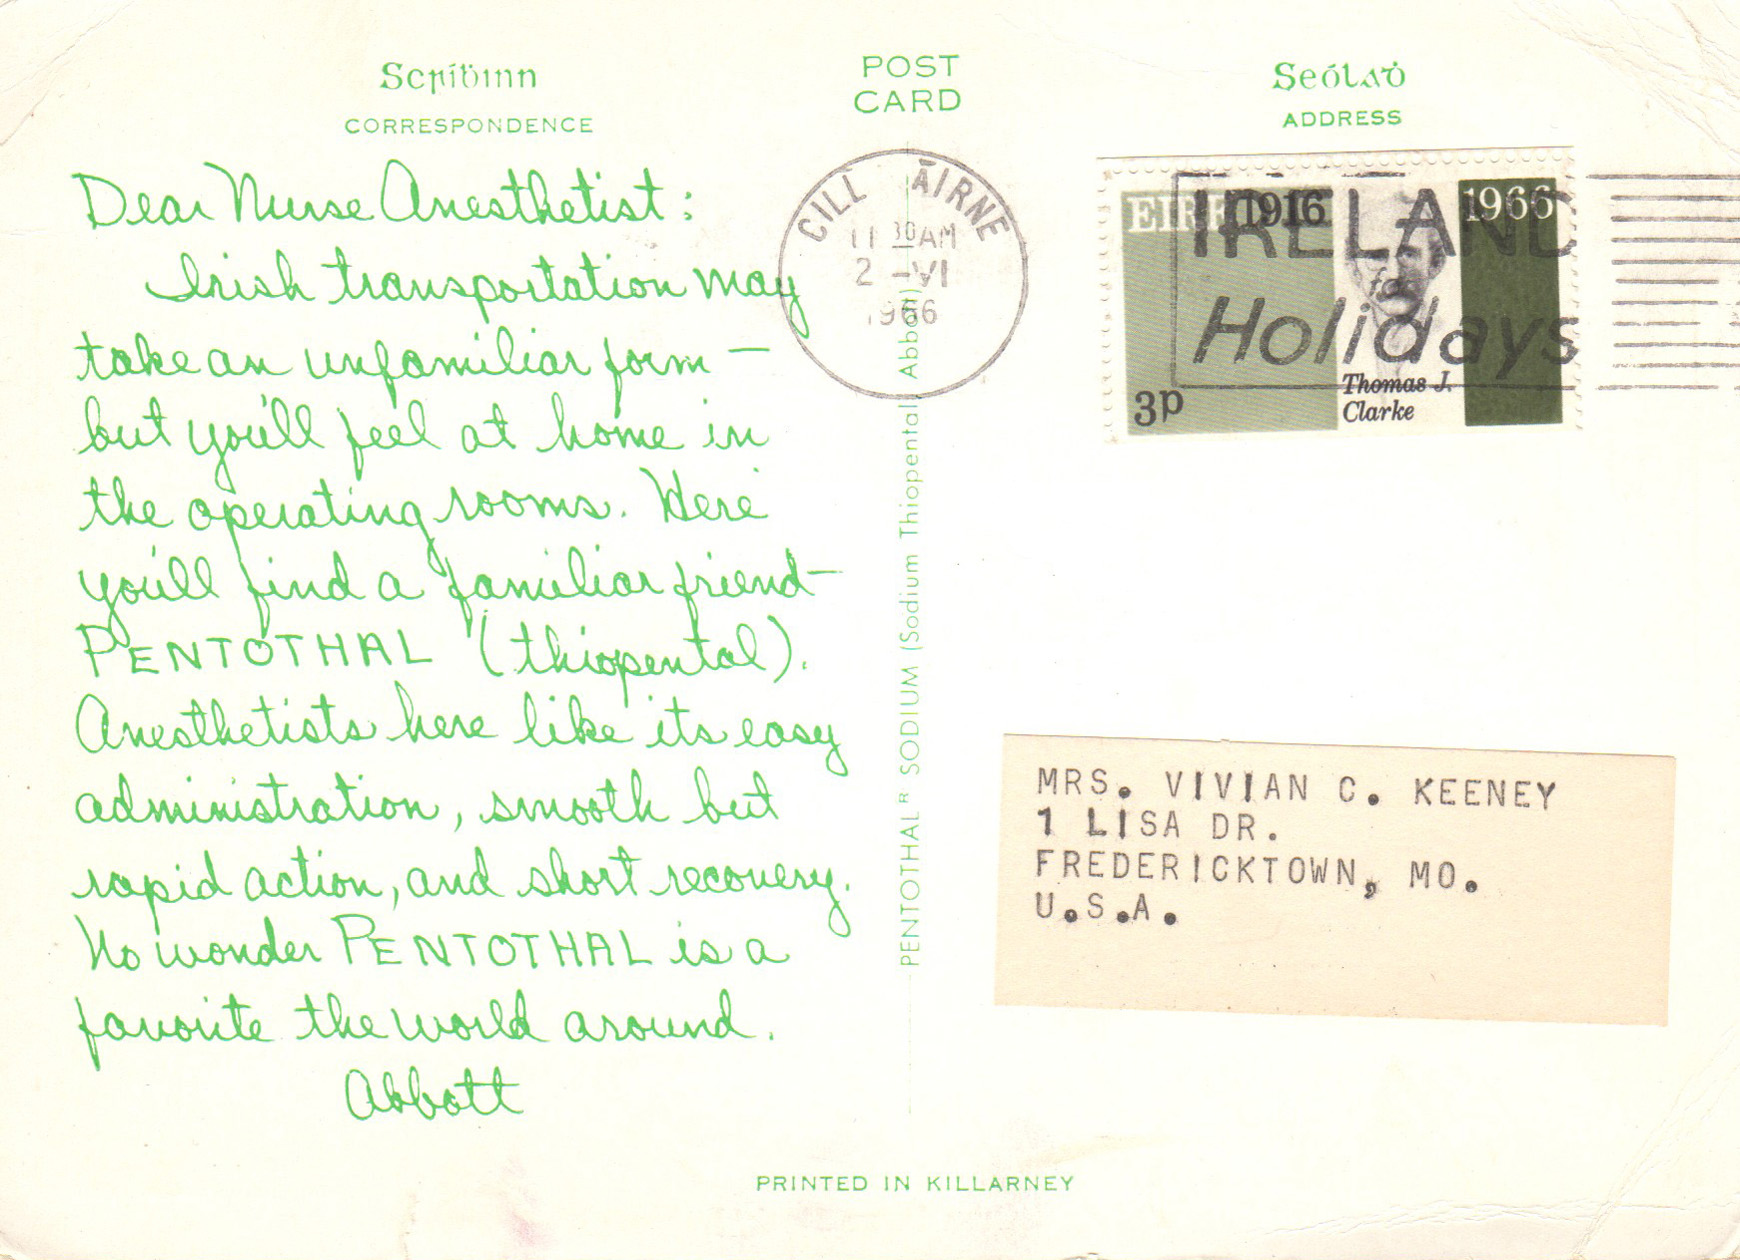 Scríḃinn
CORRESPONDENCE
POST
CARD
Seólaḋ
ADDRESS
Dear Nurse Anesthetist:
Irish transportation may
take an unfamiliar form —
but you'll feel at home in
the operating rooms. Here
you'll find a familiar friend—
PENTOTHAL (thiopental).
Anesthetists here like its easy
administration, smooth but
rapid action, and short recovery.
No wonder PENTOTHAL is a
favorite the world around.
Abbott
PENTOTHAL® SODIUM (Sodium Thiopental, Abbott)
CILL ÁIRNE
11 30 AM
2 -VI
1966
EIRE 1916 1966
3p
Thomas J.
Clarke
IRELAND
for
Holidays
MRS. VIVIAN C. KEENEY
1 LISA DR.
FREDERICKTOWN, MO.
U.S.A.
PRINTED IN KILLARNEY